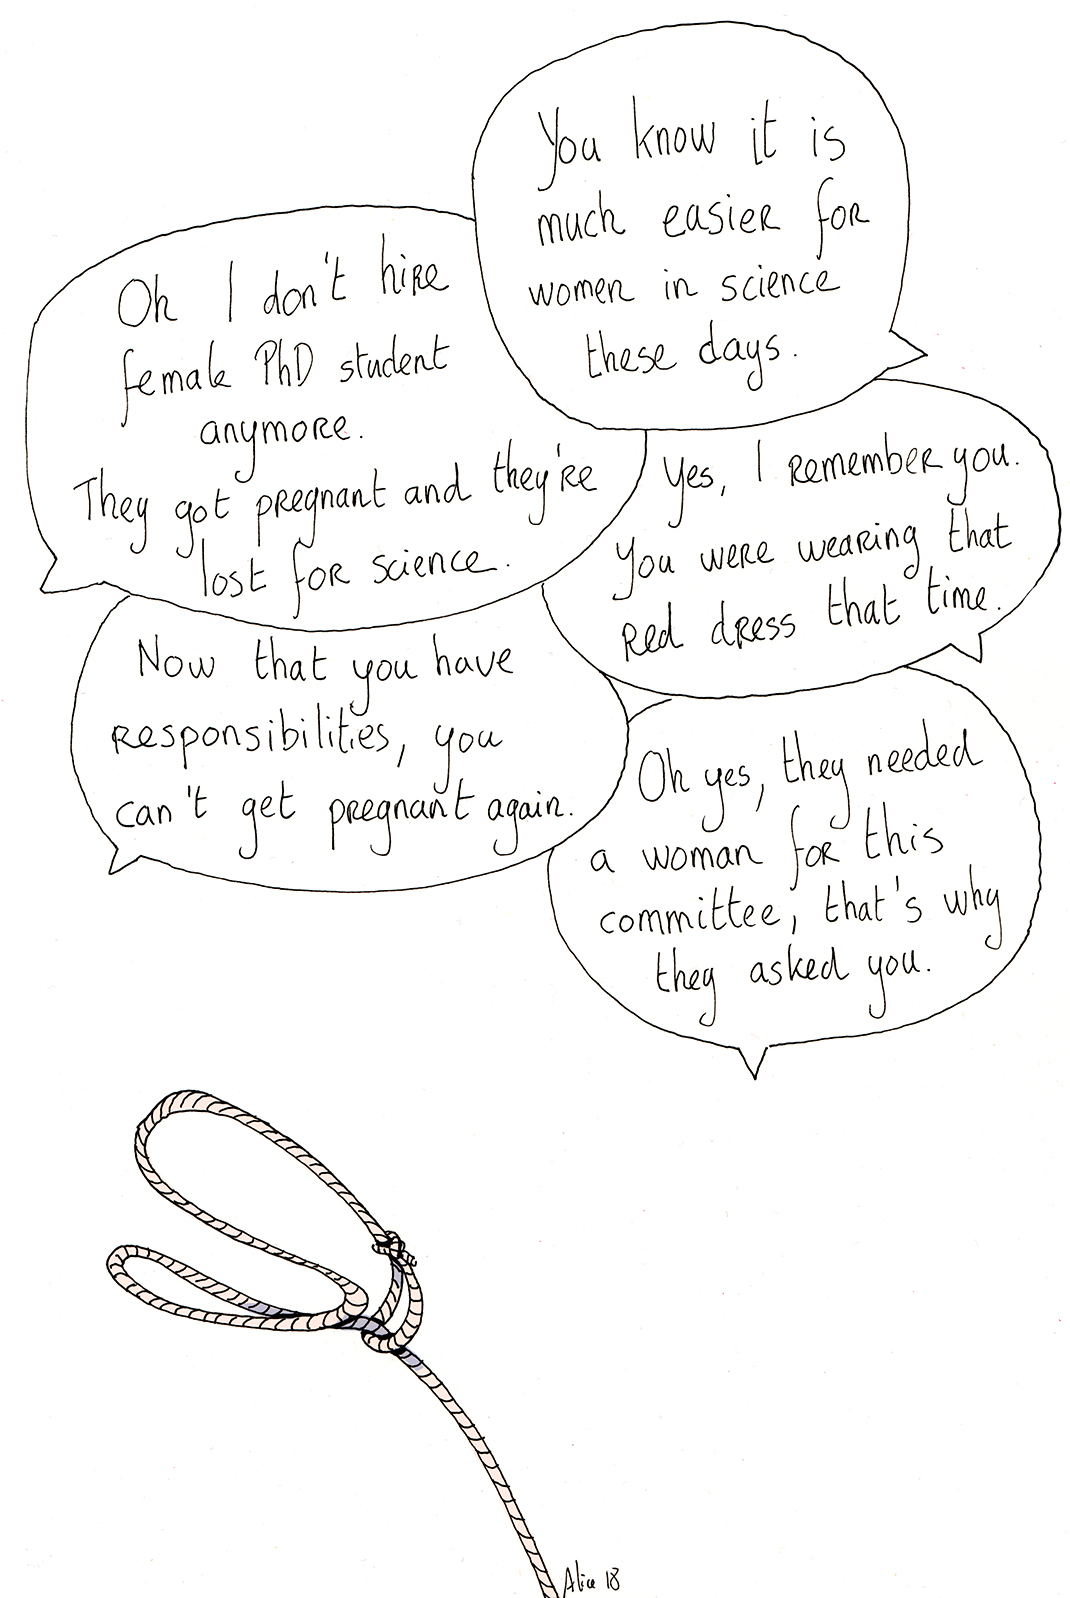 You know it is
much easier for
women in science
these days.
Oh I don't hire
female PhD student
anymore.
They got pregnant and they're
lost for science.
Yes, I remember you.
You were wearing that
red dress that time.
Now that you have
responsibilities, you
can't get pregnant again.
Oh yes, they needed
a woman for this
committee, that's why
they asked you.
Alice 18